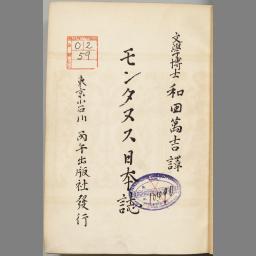 文學博士 和田萬吉譯
モンタヌス日本誌
東京小石川 丙午出版社發行
012
59